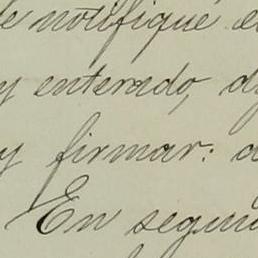 le notifiqué e
y enterado, d
y firmar: d
En segui